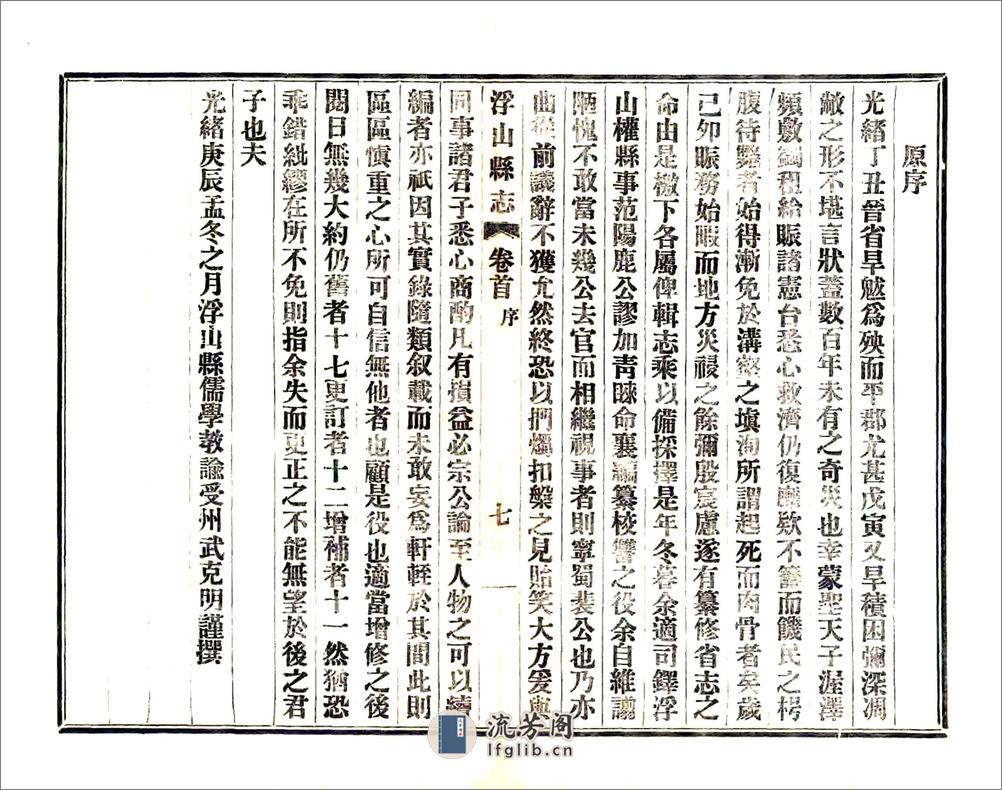 原序
光緒丁丑晉省旱魃爲殃而平郡尤甚戊寅又旱積困彌深凋
敝之形不堪言狀蓋數百年未有之奇災也幸蒙聖天子渥澤
頻敷蠲租給賑諸憲台悉心救濟仍復廳欵不籌而饑民之枵
腹待斃者始得漸免於溝壑之填洵所謂起死而肉骨者矣歲
己卯賑務始暇而地方災祲之餘彌殷宸慮遂有纂修省志之
命由是檄下各屬俾輯志乘以備採擇是年冬暮余適司鐸浮
山權縣事范陽鹿公謬加靑睞命襄編纂校讐之役余自維譾
陋愧不敢當未幾公去官而相繼視事者則寧蜀裴公也乃亦
曲從前議辭不獲允然終恐以捫燭扣槃之見貽笑大方爰與
浮山縣志
卷首
序
七
同事諸君子悉心商酌凡有損益必宗公論至人物之可以續
編者亦祇因其實錄隨類叙載而未敢妄爲軒輊於其間此則
區區愼重之心所可自信無他者也顧是役也適當增修之後
閱日無幾大約仍舊者十七更訂者十二增補者十一然猶恐
乖錯紕繆在所不免則指余失而更正之不能無望於後之君
子也夫
光緒庚辰孟冬之月浮山縣儒學教諭受州武克明謹撰
流芳阁
lfglib.cn